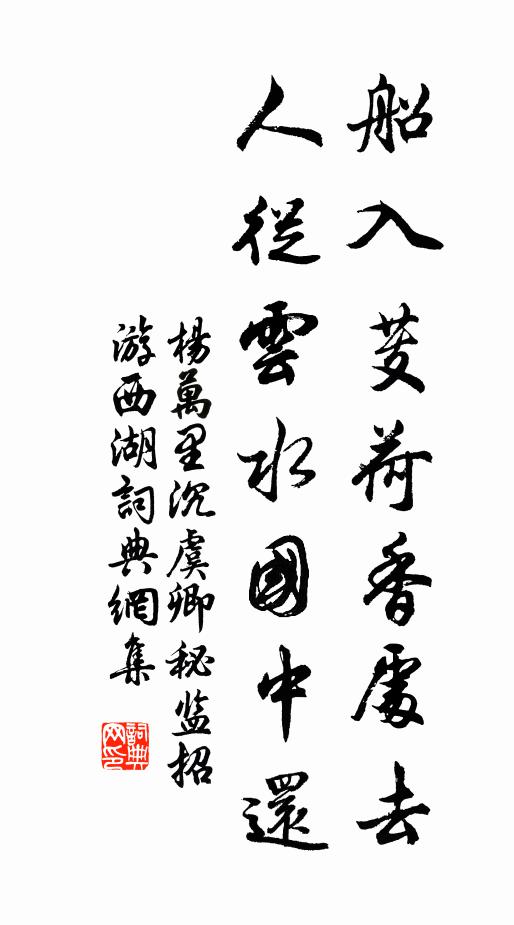 船入芰荷香處去
人從雲水國中還
楊萬里沉虞卿秘监招
游西湖詞典網集
詞典網印